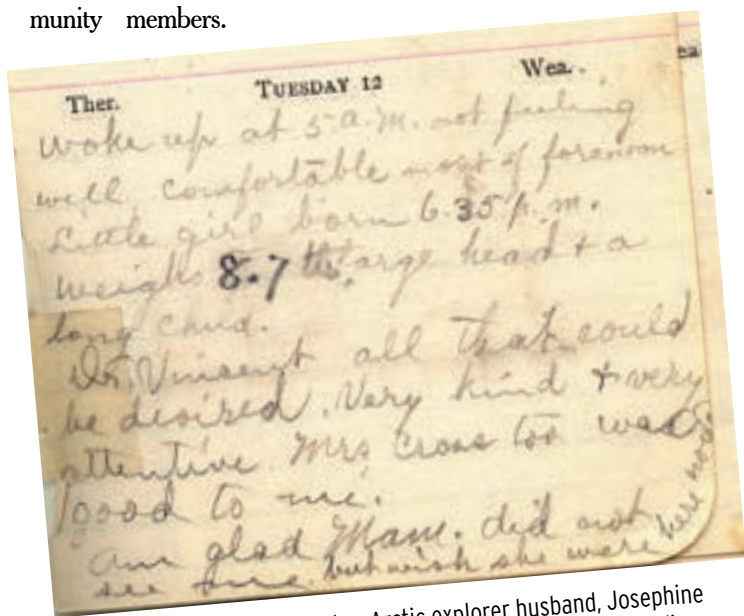 munity members.
Ther. TUESDAY 12 Wea.
woke up at 5 a.m. not feeling
well comfortable most of forenoon
Little girl born 6.35 p.m.
weighs 8.7 lbs. large head & a
long child.
Dr. Vincent all that could
be desired. Very kind & very
attentive. Mrs Cross too was
good to me.
am glad Mam. did not
see me but wish she were here now
Arctic explorer husband, Josephine